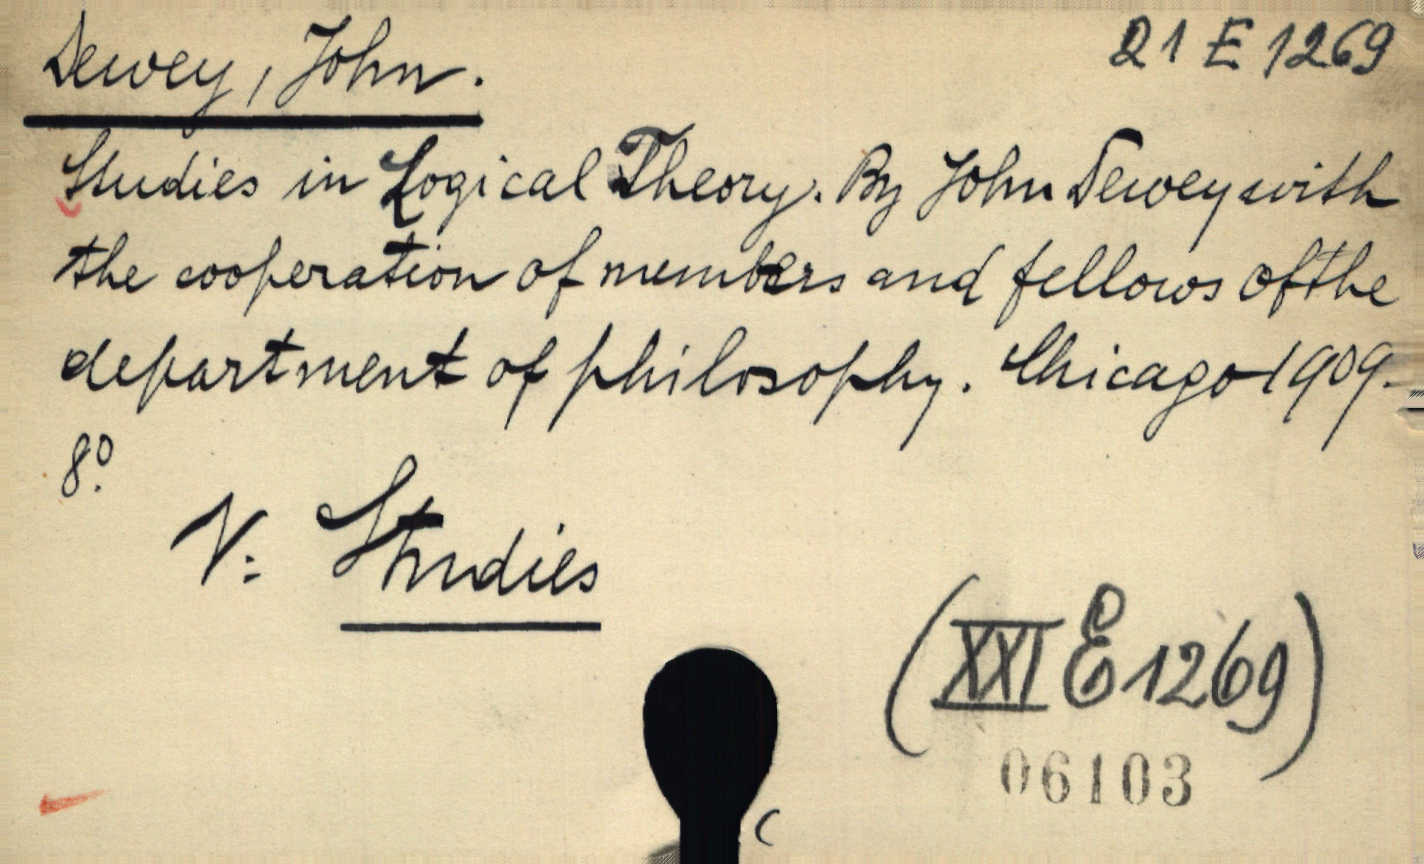 Dewey, John.
21 E 1269
Studies in Logical Theory. By John Dewey with
the cooperation of members and fellows of the
department of philosophy. Chicago 1909.
8°.
V: Studies
(XXI E 1269)
06103
C